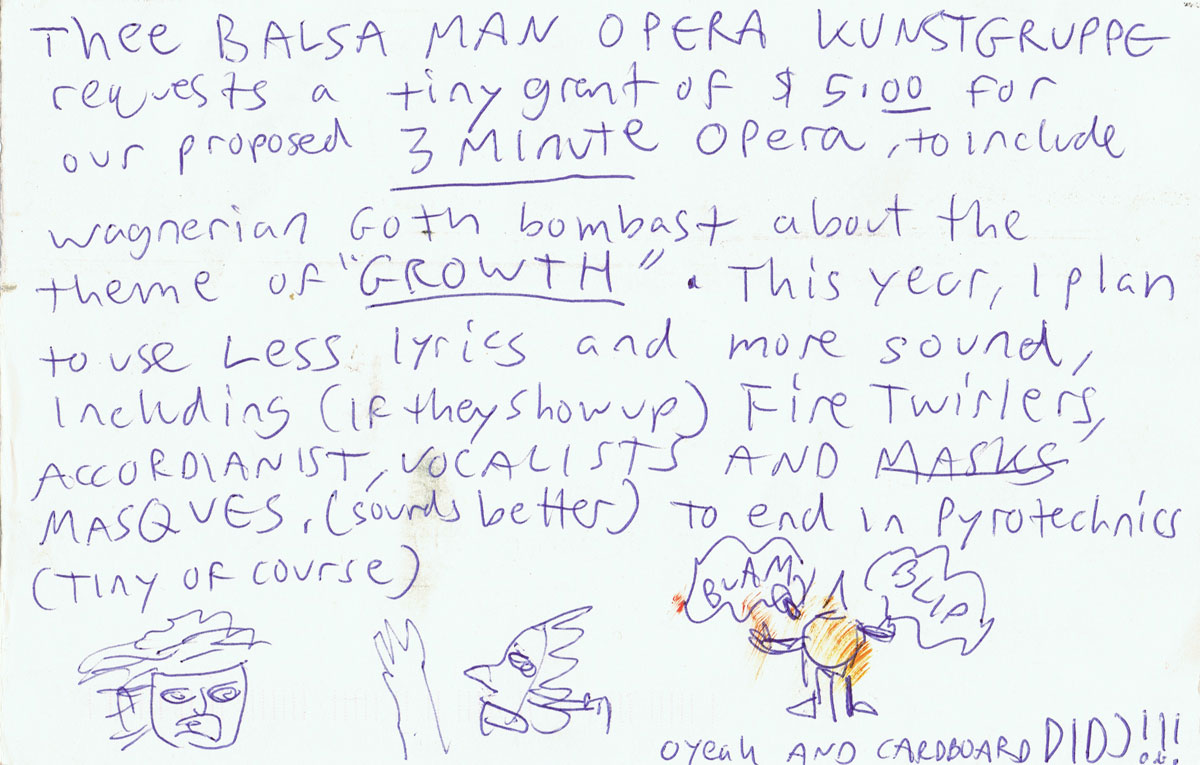 Thee BALSA MAN OPERA KUNSTGRUPPE
requests a tiny grant of $ 5.00 for
our proposed 3 Minute Opera, to include
wagnerian Goth bombast about the
theme of "GROWTH". This year, I plan
to use Less lyrics and more sound,
Including (IF they show up) Fire Twirlers,
ACCORDIANIST, VOCALISTS AND MASKS
MASQUES, (sounds better) To end in Pyrotechnics
(TINY OF COURSE)
BLAM
BLIP
OYeah AND CARDBOARD DIDJ!!!